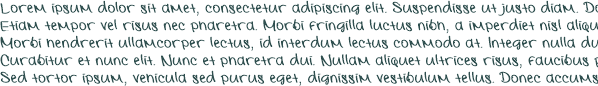 Lorem ipsum dolor sit amet, consectetur adipiscing elit. Suspendisse ut justo diam. Do
Etiam tempor vel risus nec pharetra. Morbi fringilla luctus nibh, a imperdiet nisl aliqu
Morbi hendrerit ullamcorper lectus, id interdum lectus commodo at. Integer nulla du
Curabitur et nunc elit. Nunc et pharetra dui. Nullam aliquet ultrices risus, faucibus p
Sed tortor ipsum, vehicula sed purus eget, dignissim vestibulum tellus. Donec accums